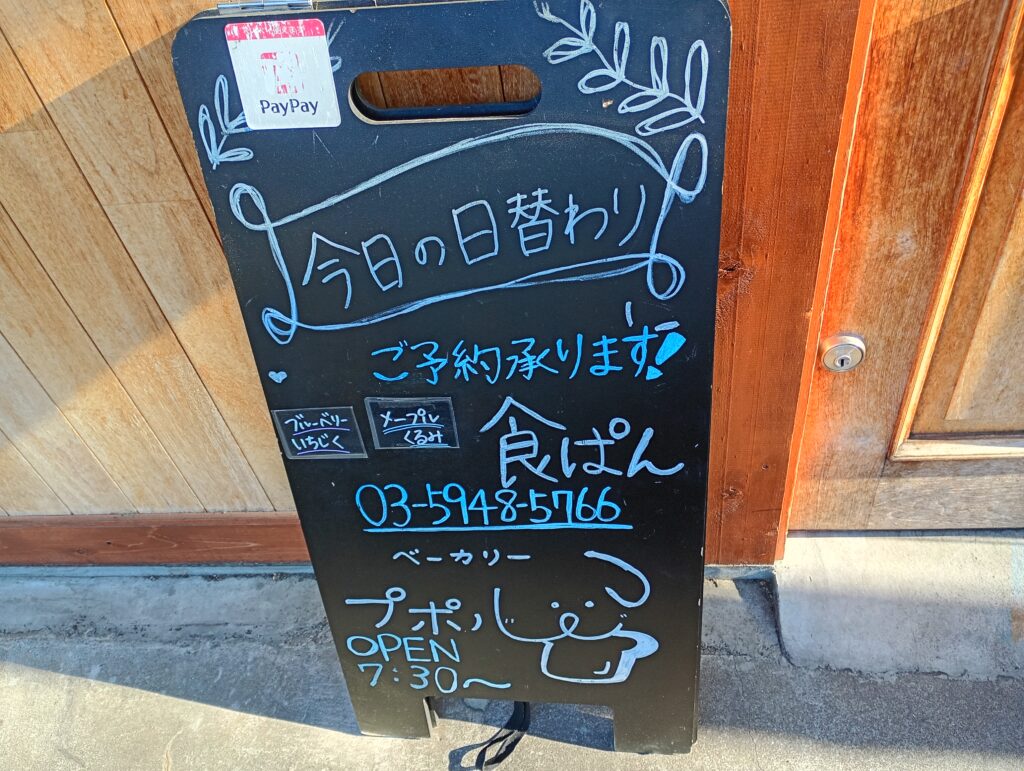 PayPay
今日の日替わり
ご予約承ります!
ブルーベリー
いちじく
メープル
くるみ
食ぱん
03-5948-5766
ベーカリー
プポル
OPEN
7:30〜